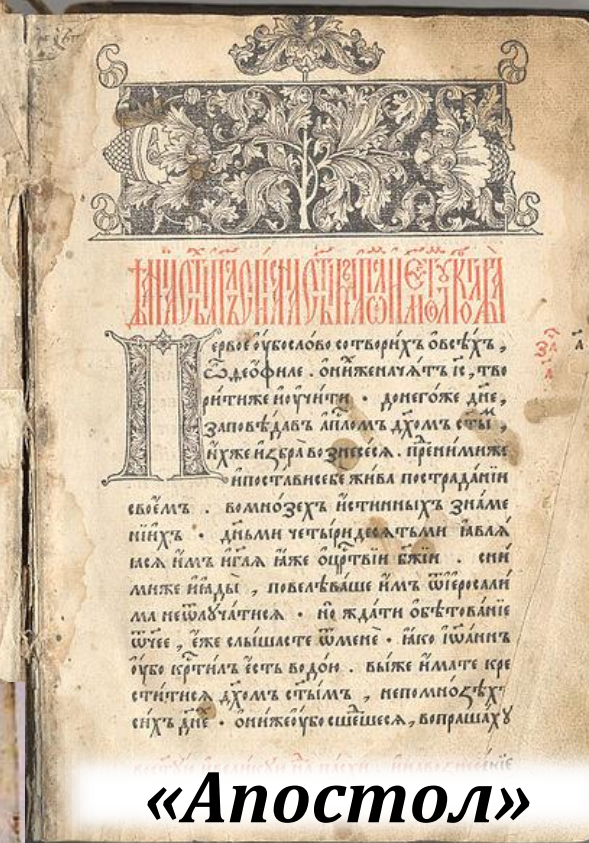 Первое ѹ҆бо сло́во сотвори́хъ ѡ҆ всѣ́хъ ,
ѽ де́ѡфиле . ѡ҆ ни́хже нача́тъ і҆с҃ , тво
ри́ти же и҆ ѹ҆чи́ти · до него́же дн҃е ,
запов́ѣдавъ а҆пл҃омъ дх҃омъ ст҃ы́мъ ,
и҆́хже и҆збра̀ вознесе́сѧ . пред ни́миже
и҆ поста́ви себѐ жи́ва по страда́нїи
свое́мъ . во мно́зехъ и҆́стинныхъ зна́ме
нїихъ · дн҃ьми четы́ридесѧтьми ꙗ҆влѧ́
ꙗсѧ и҆̀мъ и҆ гл҃ѧ ꙗ҆́же ѡ҆ цр҃твїи бж҃їи . с ни́
миже и҆ ꙗ҆ды̀ , повелѣва́ше и҆̀мъ ѿ і҆еросали́
ма не ѿлуча́тисѧ · но жда́ти ѡ҆бѣтова́нїе
ѿч҃ее , є҆́же слы́шасте ѿ менє̀ · ꙗ҆́ко і҆ѡа́ннъ
ѹ҆́бо кр҃ти́лъ є҆́сть водо́ю . вы́ же и҆́мате кре
сти́тисѧ дх҃омъ ст҃ы́мъ , не по мно́зѣхъ
си́хъ дн҃е · ѡ҆ни́ же ѹ҆́бо сше́дшесѧ , вопраша́хꙋ
«Апостол»